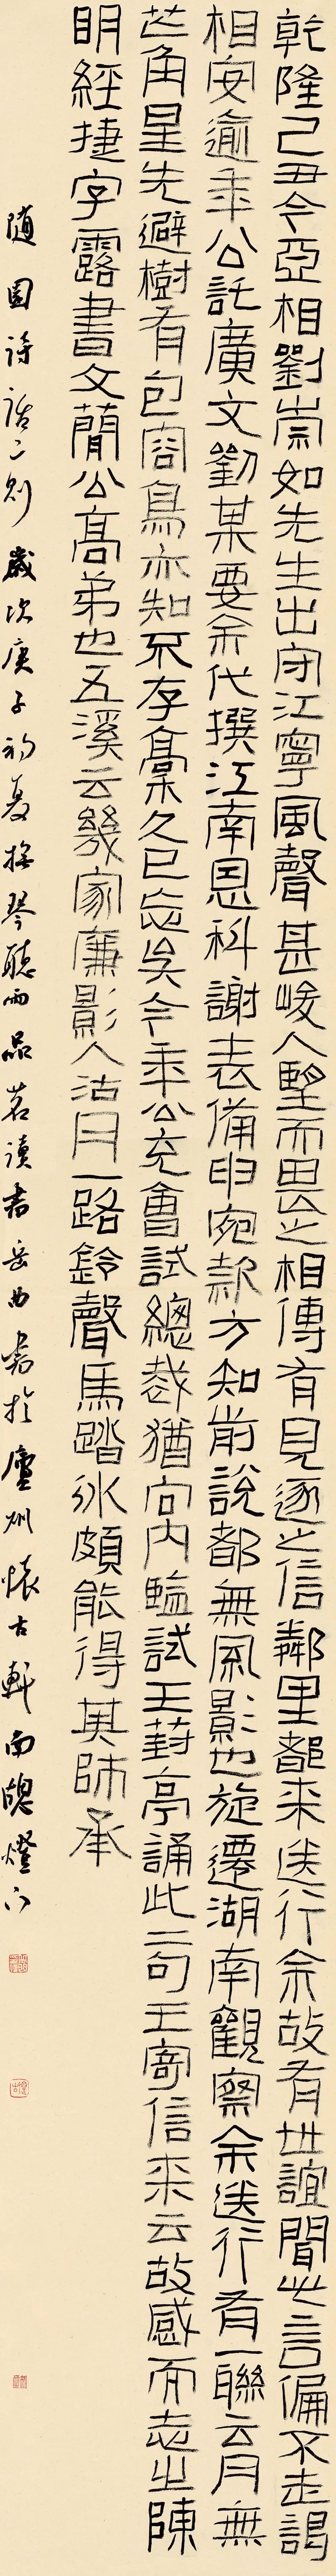 乾隆己丑今亞相劉崇如先生出守江寧風聲甚峻人望而畏之相傳有見逐之信鄰里都來送行余故有世誼聞此言偏不走謁
相安逾年公託廣文劉某要余代撰江南恩科謝表備申宛款方知前說都無風影也旋遷湖南觀察余送行有一聯云月無
芒角星先避樹有包容鳥亦知不存稿久已忘矣今年公充會試總裁猶向內監試王葑亭誦此二句王寄信來云故感而志之陳
明經捷字露書文簡公高弟也五溪云幾家簾影人沽月一路鈴聲馬踏冰頗能得其師承
隨園詩話二則 歲次庚子初夏撫琴聽雨品茗讀書岳西書於廬州懷古軒南窗燈下